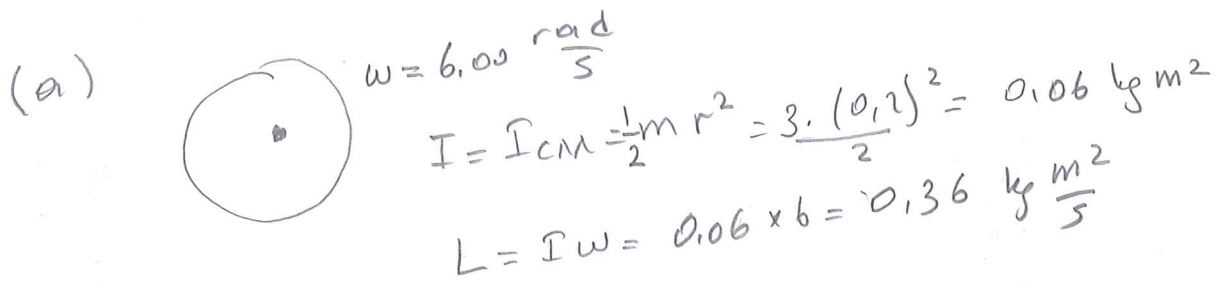 (a)
w = 6,00 rad/s
I = I_CM = 1/2 m r² = 3. (0,2)² / 2 = 0,06 kg m²
L = I w = 0,06 x 6 = 0,36 kg m²/s